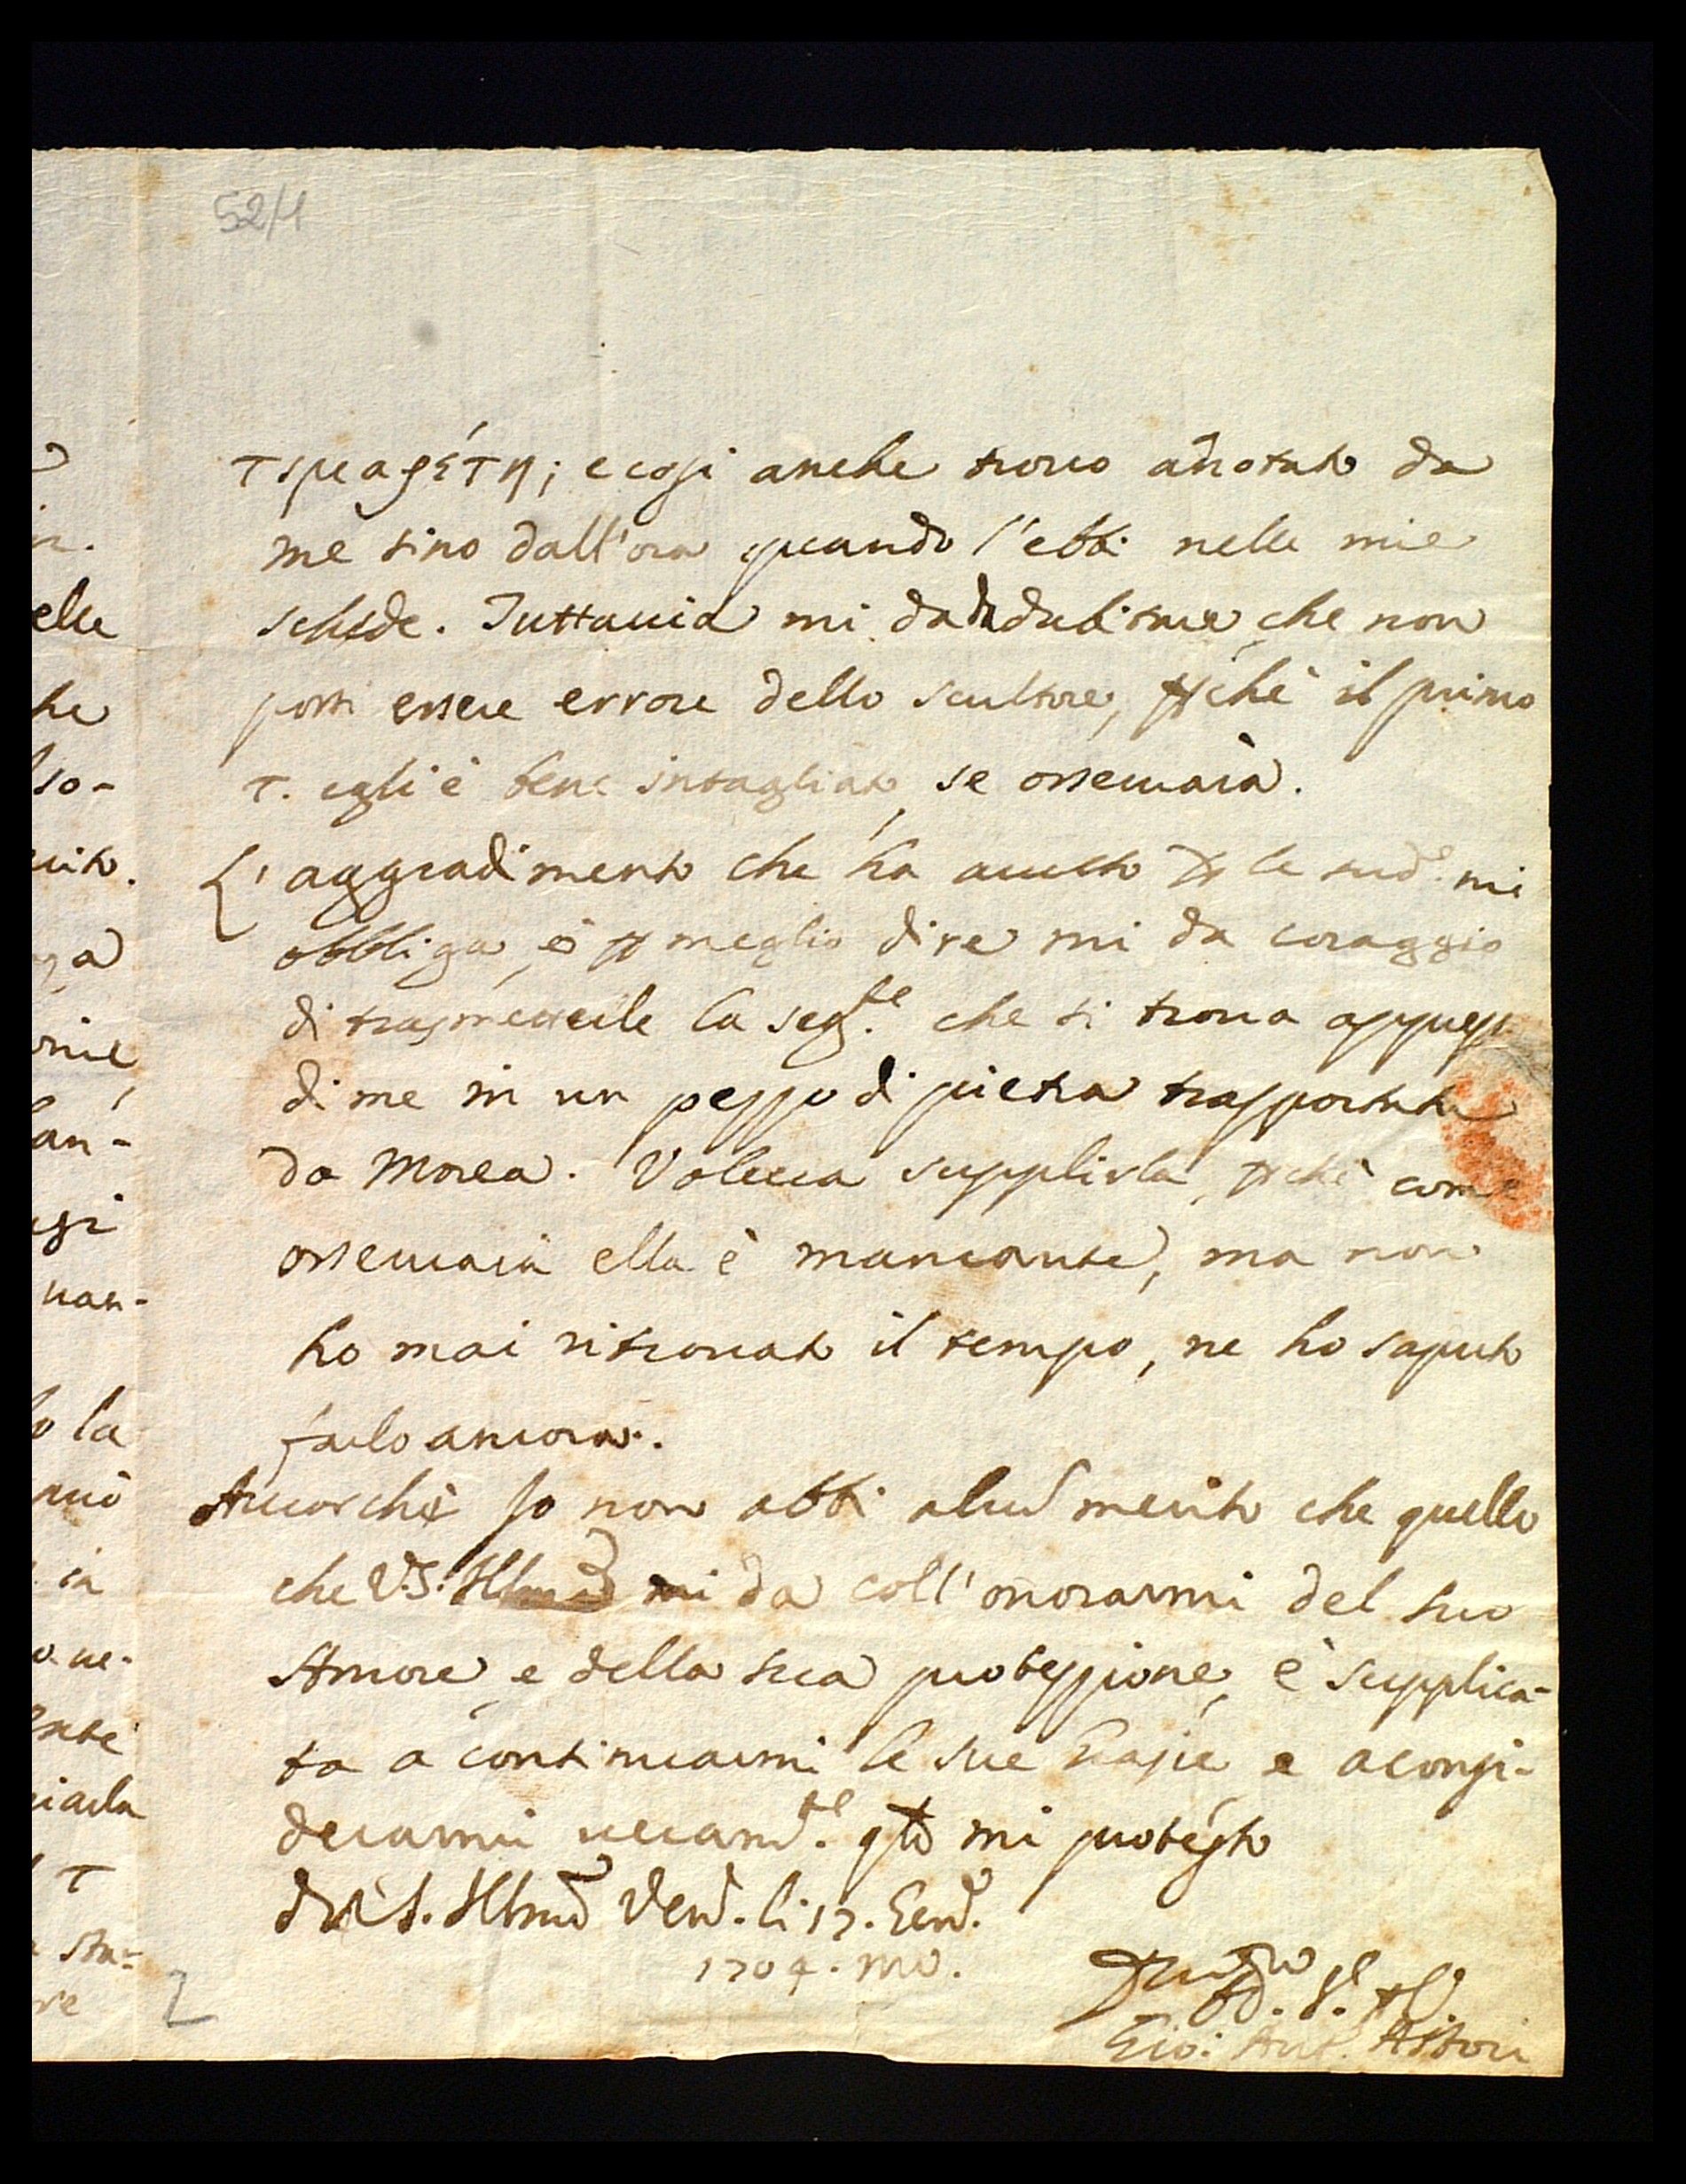 52/1
; e cosi anche trovo anotato da
me sino dall'ora quando l'ebbi nelle mie
schede. Tuttauia mi da da dubitare, che non
possi essere errore dello scultore, pchè il primo
T. egli è bene intagliato, se osseruarà.
L'aggradimento che ha auuto p le sud.e mi
obbliga, ò p meglio dire mi da coraggio
di trasmetterle la seg.te che si troua appresso
di me in un pezzo di pietra trasportata
da Morea. Voleua supplirla, pchè come
osseruarà ella è mancante, ma non
ho mai ritrouato il tempo, ne ho saputo
farlo ancora.
Ancorchè Io non abbi alcun merito che quello
che V.S. Illma mi da coll'onorarmi del suo
Amore, e della sua protezzione, è supplica-
ta a continuarmi le sue grazie, e a consi-
derarmi ueram.te qto mi protesto
di V.S. Illma Ven.a li 17. Gen.o
1704. mv.
Gio: Ant.o Astori
elle
he
so-
uito.
an-
uan-
o la
in
iarla
T
re
2